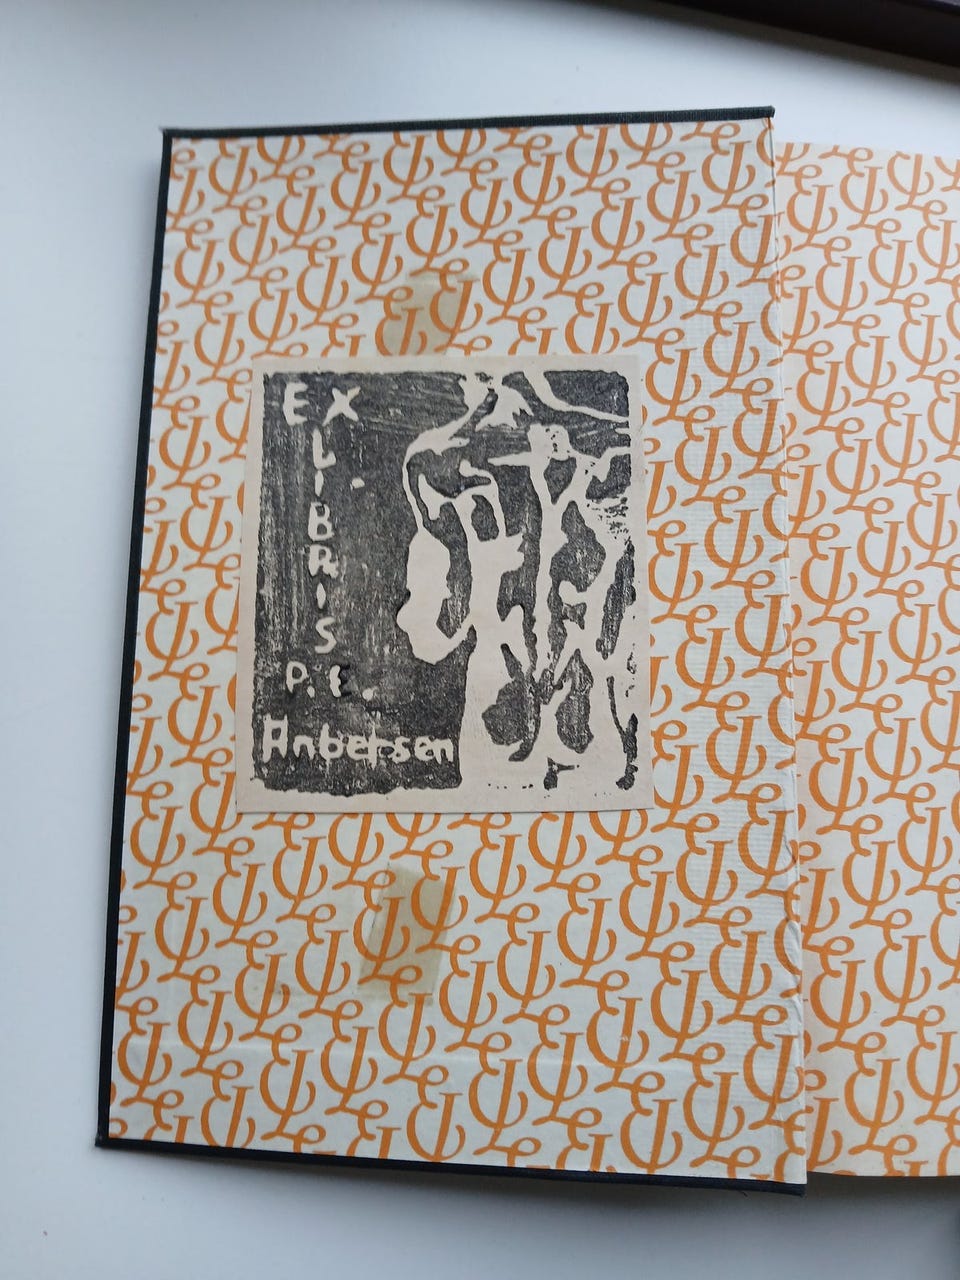 EX
LIBRIS
P.E.
Anbersen